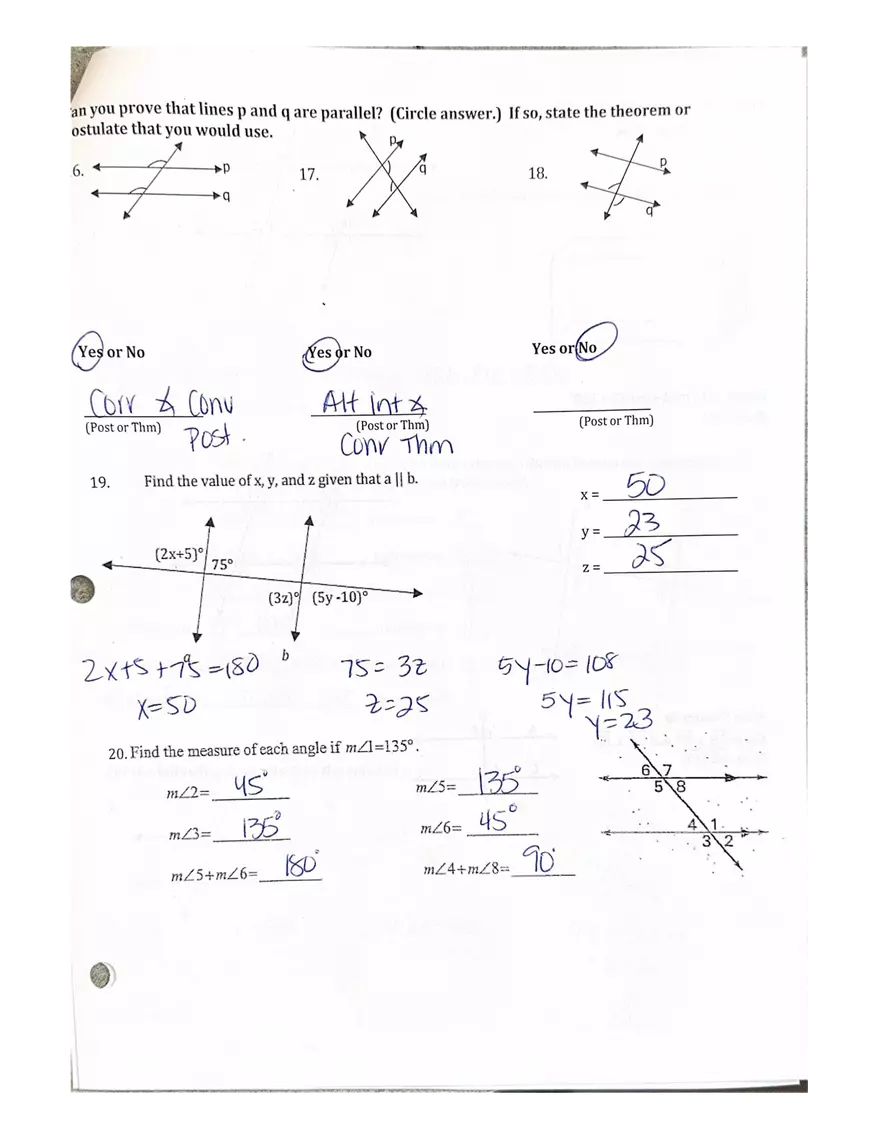 an you prove that lines p and q are parallel? (Circle answer.) If so, state the theorem or
ostulate that you would use.
6.
p
q
17.
p
q
18.
p
q
Yes or No
Yes or No
Yes or No
Corr ∡ Conv
Alt int ∡
(Post or Thm)
Post.
(Post or Thm)
Conv Thm
(Post or Thm)
19. Find the value of x, y, and z given that a || b.
x = 50
y = 23
z = 25
(2x+5)°
75°
(3z)°
(5y -10)°
a
b
2x+5+75=180
75=3z
5y-10=108
x=50
z=25
5y=115
y=23
20. Find the measure of each angle if m∠1=135°.
m∠2= 45°
m∠5= 135°
m∠3= 135°
m∠6= 45°
m∠5+m∠6= 180°
m∠4+m∠8= 90°
6 7
5 8
4 1
3 2